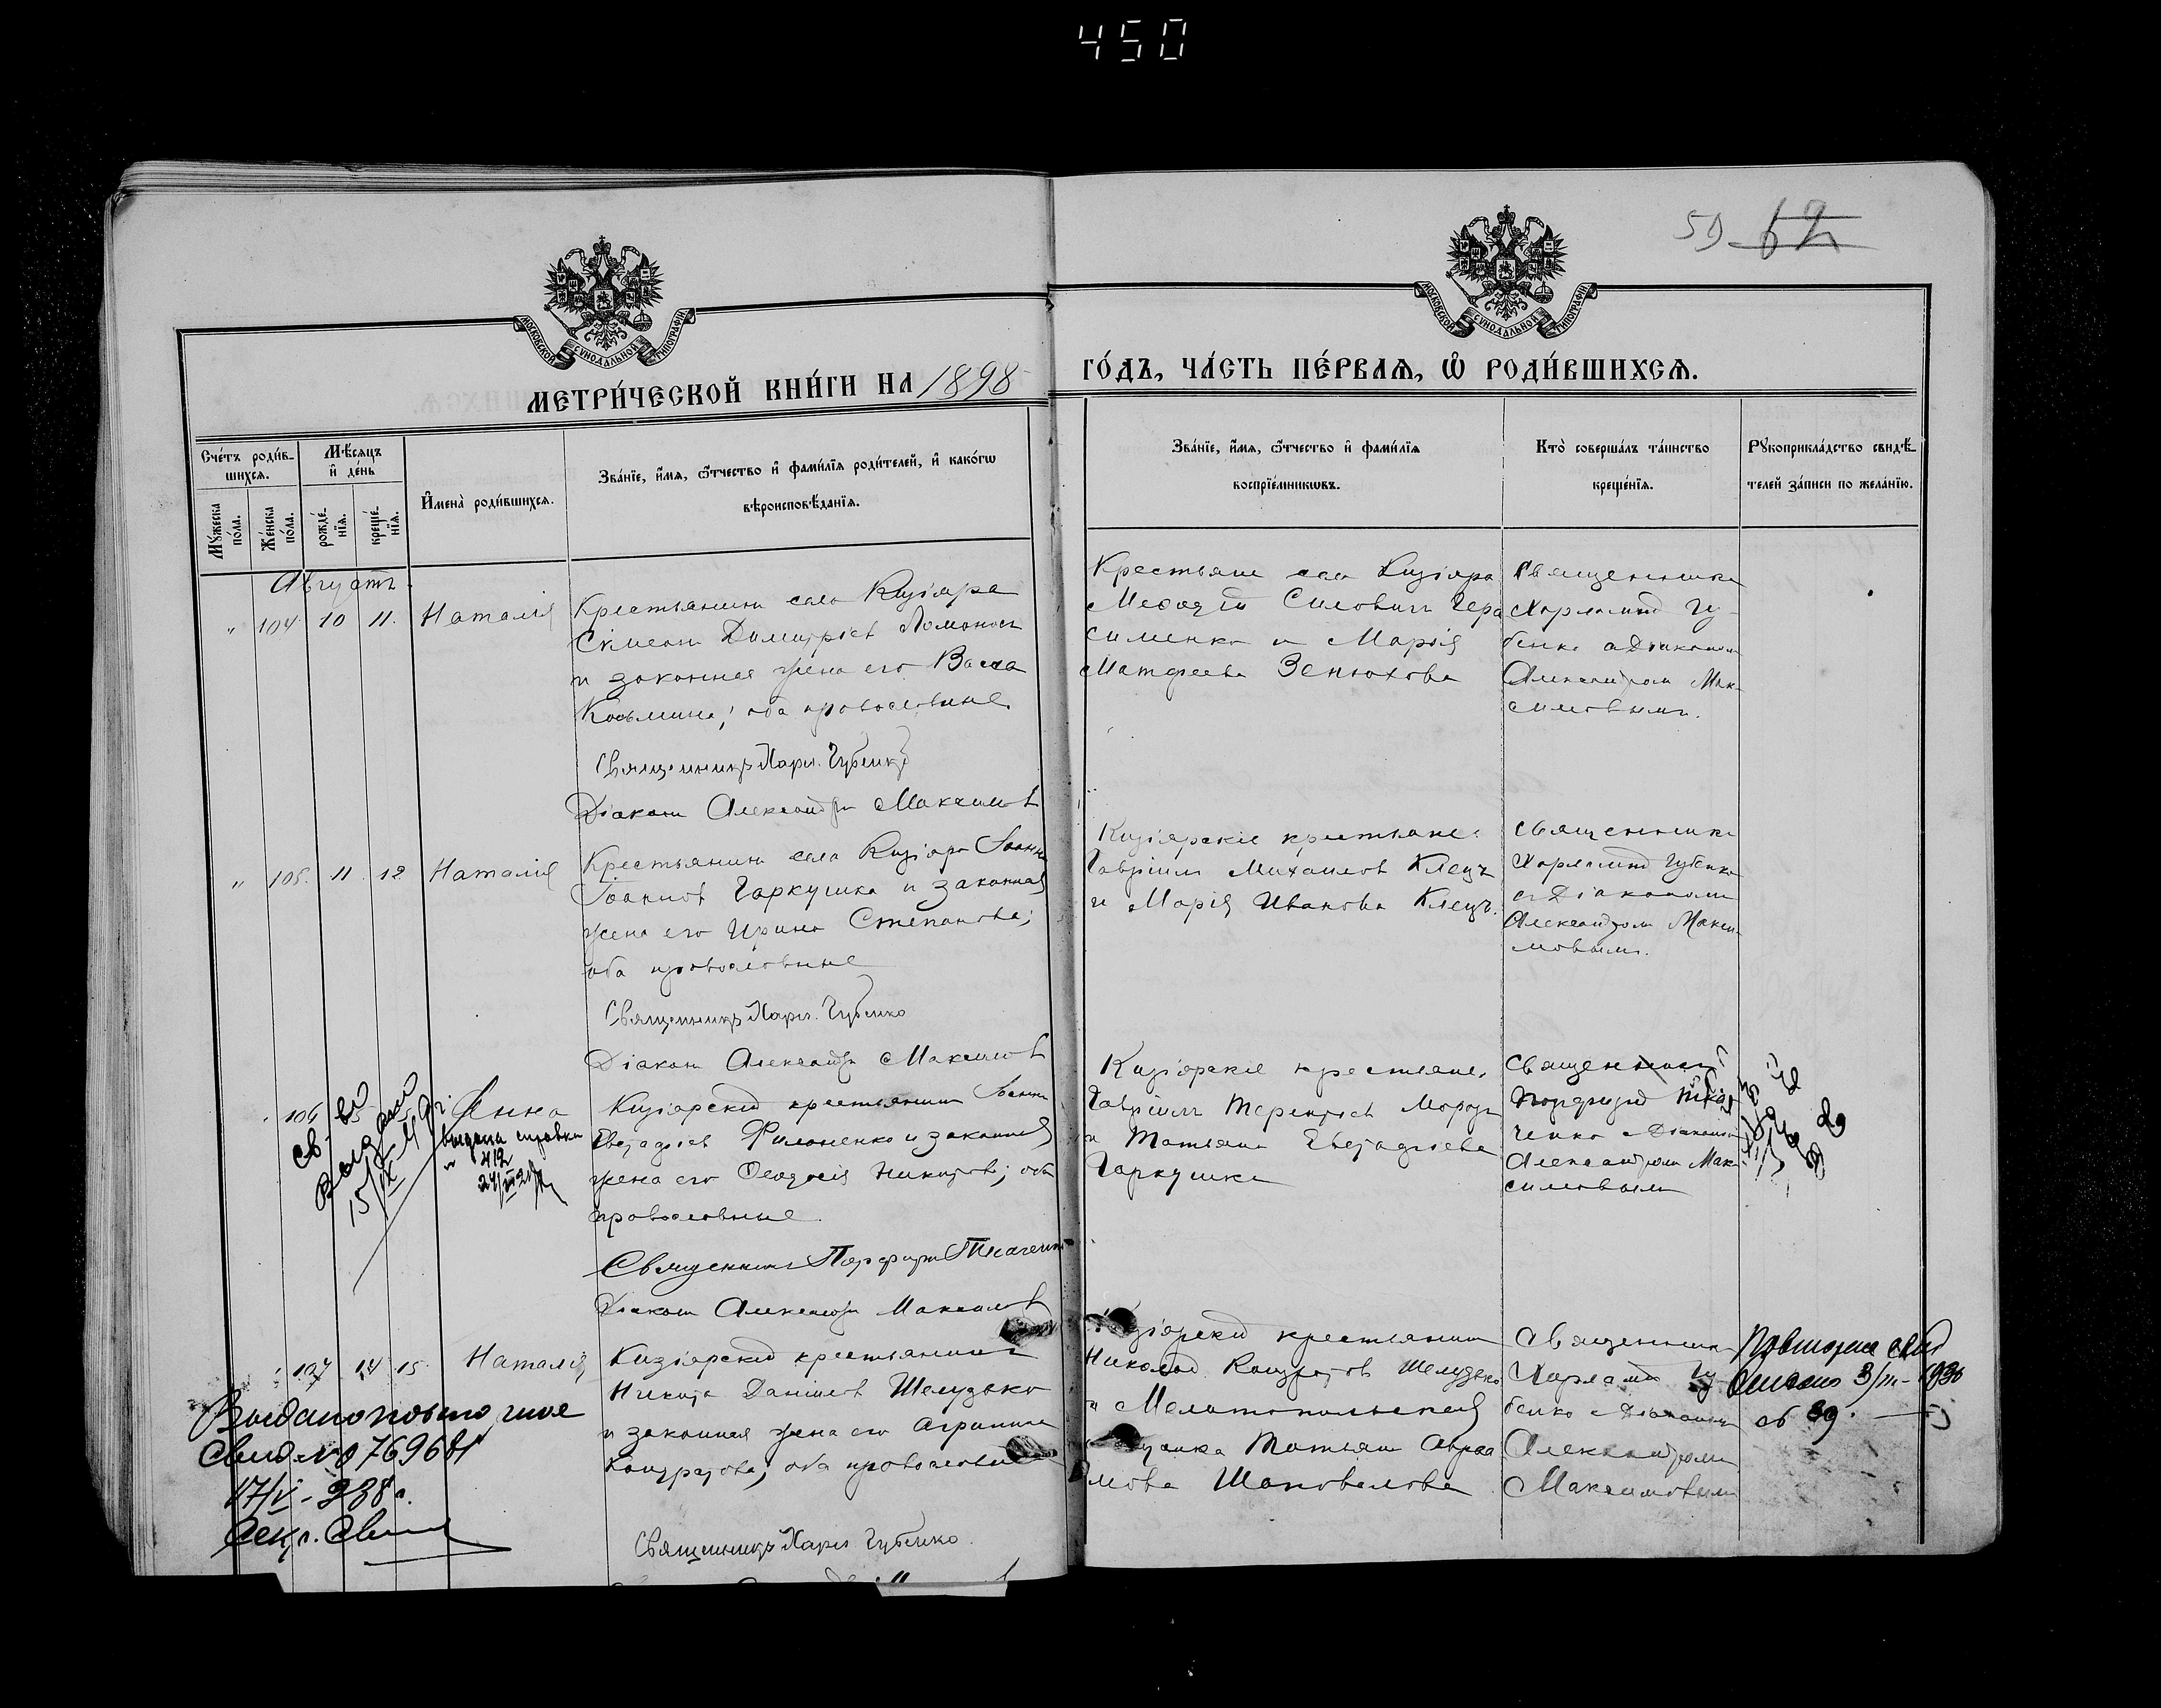 450
59 62
МОСКОВСКОЙ СѴНОДАЛЬНОЙ ТИПОГРАФІИ
МОСКОВСКОЙ СѴНОДАЛЬНОЙ ТИПОГРАФІИ
МЕТРИ́ЧЕСКОЙ КНИ́ГИ НА 1898
ГО́ДЪ, ЧА́СТЬ ПЕ́РВАѦ, Ѡ҆ РОДИ́ВШИХСѦ.
Сче́тъ роди́в-
шихсѧ.
Мꙋ́жеска
по́ла.
Же́нска
по́ла.
Мѣ́сѧцъ
и҆ де́нь
рожде́-
нїѧ.
креще́-
нїѧ.
И҆мена̀ роди́вшихсѧ.
Зва́нїе, и҆́мѧ, ѻ҆́тчество и҆ фами́лїѧ роди́телей, и҆ како́гѡ
вѣроисповѣ́данїѧ.
Зва́нїе, и҆́мѧ, ѻ҆́тчество и҆ фами́лїѧ
воспрїе́мникѡвъ.
Кто̀ соверша́лъ та́инство
креще́нїѧ.
Рꙋкоприкла́дство свидѣ́-
телей за́писи по жела́нїю.
Августъ.
" 104 10 11. Наталія
Крестьянинъ села Кизіяра
Сѵмеонъ Димитріевъ Ломоносъ
и законная жена его Васса
Косьмина; оба православные
Священникъ Харл. Губенко
Діаконъ Александръ Максимовъ
Крестьяне села Кизіяра
Меѳодій Силовичъ Гера
сименко и Марія
Матфеева Зенюхова
Священникъ
Харлампій Гу-
бенко с Діакономъ
Александромъ Мак-
симовымъ.
" 105. 11 12 Наталія
Крестьянинъ села Кизіяра Іоаннъ
Іоанновъ Гаркушка и законная
жена его Ирина Степанова;
оба православные
Священникъ Харл. Губенко
Діаконъ Александръ Максимовъ
Кизіярскіе крестьяне:
Гавріилъ Михайловъ Клецъ
и Марія Иванова Клецъ.
Священникъ
Харлампій Губенко
съ Діакономъ
Александромъ Макси-
мовымъ.
" 106 Анна
Св-во
Выданый
15/IX
выдана справка
№ 412
Кизіярскій крестьянинъ Іоаннъ
Евстафіевъ Филоненко и законная
жена его Ѳеодосія Никитова; оба
православные.
Священникъ Порфирій Ткаченко
Діаконъ Александръ Максимовъ
Кизіярскіе крестьяне,
Гавріилъ Терентіевъ Морозъ
и Татьяна Евстафіева
Гаркушка
Священникъ
Порфирій Тка
ченко с Діакономъ
Александромъ Мак-
симовымъ
" 107 14 15. Наталія
Кизіярскій крестьянинъ
Никита Даніиловъ Шелудько
и законная жена его Агрипина
Кондратова; оба православные
Священникъ Харл Губенко
Кизіярскій крестьянинъ
Николай Кондратовъ Шелудько
и Мелитопольская
Татьяна Авраа
мова Шаповалова
Священникъ
Харлампій Гу-
бенко с Діакономъ
Александромъ
Максимовымъ
Выдано повторное
Свид №0769681
17/V-938г.
Повторное свид
3/III-1930
об 89.